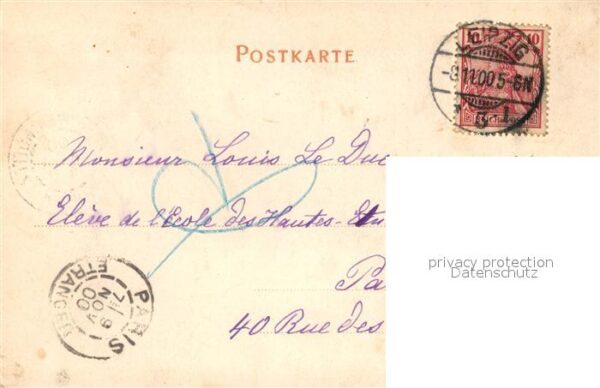 POSTKARTE
10 10
LEIPZIG
-8.11.00.5-6N
5 1
Monsieur Louis Le Duc
Elève de l'Ecole des Hautes-Etu
Pa
40 Rue des
PARIS
ETRANGER
NOV
00
privacy protection
Datenschutz